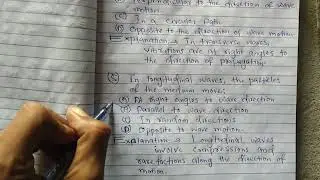 Perpendicular to the direction of wave
motion.
(C) In a circular path.
(D) Opposite to the direction of wave motion.
Explanation → In transverse waves,
vibrations are at right angles to
the direction of propagation.
In longitudinal waves, the particles
of the medium moves.
(A) At right angles to wave direction
Parallel to wave direction
In random directions
Opposite to wave motion.
Explanation → Longitudinal waves
involve compressions and
rarefactions along the direction of
motion.